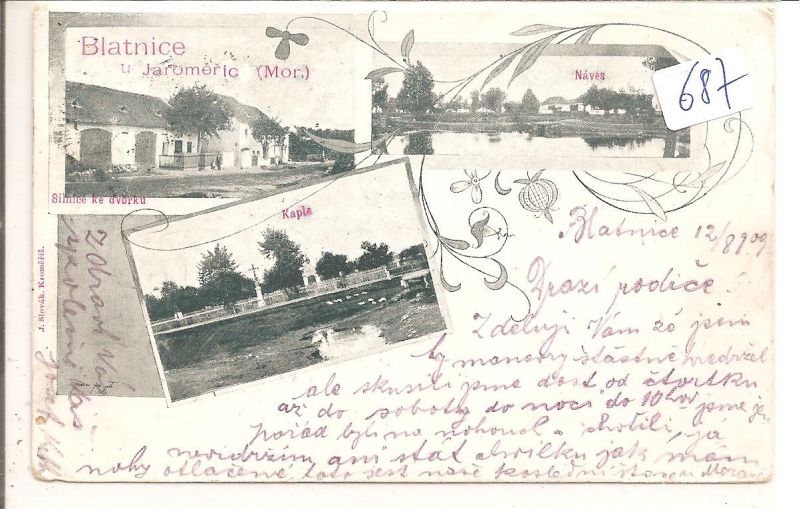 Blatnice
u Jaroměřic (Mor.)
Náves
687
Silnice ke dvorku
Kaple
J. Slovák. Kroměříž.
Blatnice 12/8 909
Drazí rodiče
Zdeluji Vám že jsem
ty manevry štástně vedržel
ale skusili jsme dost od čtvrtku
až do soboty do noci do 10 hod jsme
pořád byli na nohouch a chotili, já
nevidržim ani stat chvilku jak mam
nohy otlačené toto jest naše
Zdraví Vás